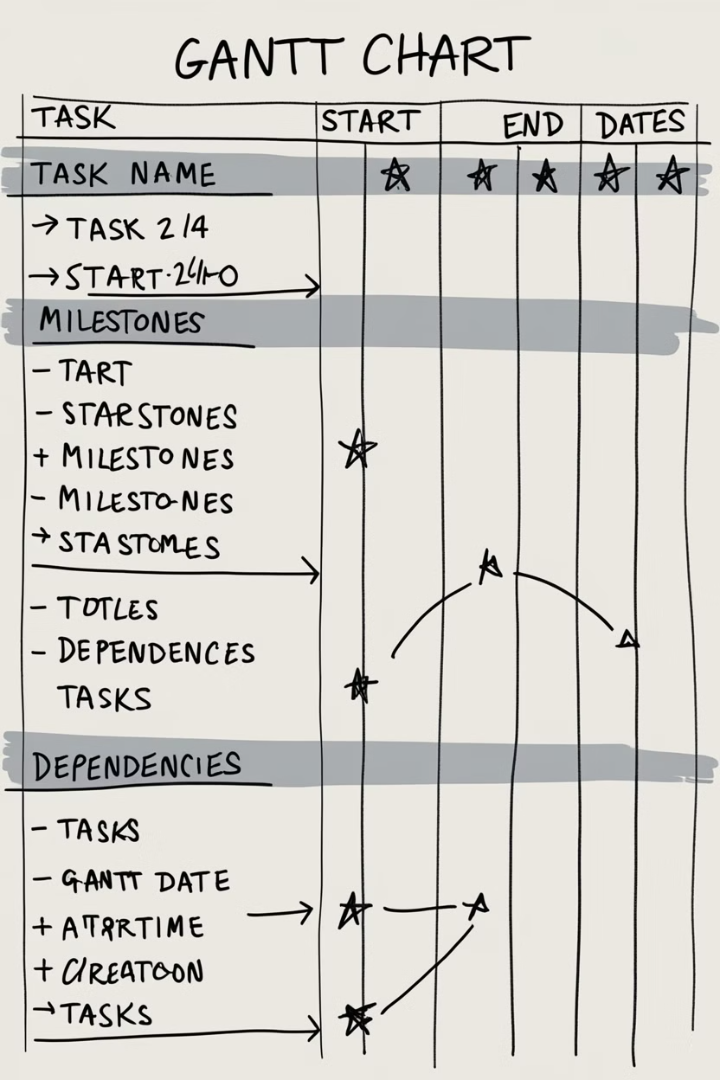 GANTT CHART
TASK START END DATES
TASK NAME
→ TASK 2/4
→ START
MILESTONES
- TART
- STARSTONES
+ MILESTONES
- MILESTONES
→ STASTOMES
- TOTLES
- DEPENDENCES
TASKS
DEPENDENCIES
- TASKS
- GANTT DATE
+
+
→ TASKS